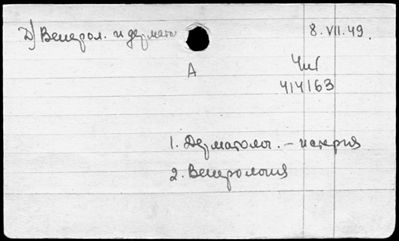 Д) Венерол. и дермато 8.VII.49.
А
Чит
414163
1. Дерматолог. – история
2. Венерология